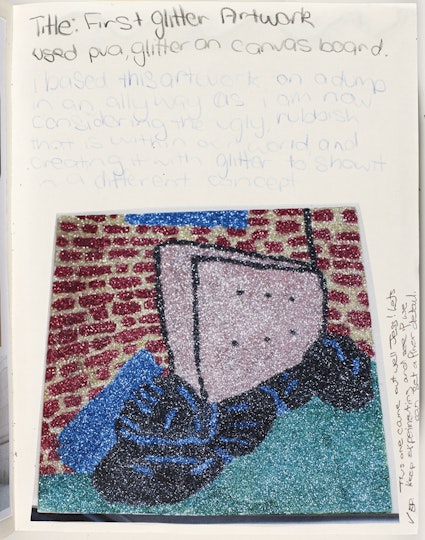 Title: First glitter Artwork
used pva, glitter on canvas board.
I based this artwork on a dump
in an allyway as i am now
considering the ugly, rubbish
that is within our world and
creating it with glitter to show it
in a different concept
This one came out well Jess! Lets
keep experimenting and see if we
can get a finer detail.